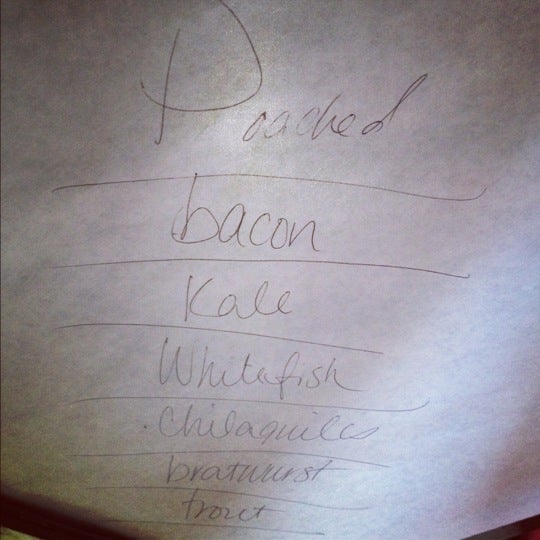 Poached
bacon
Kale
Whitefish
chilaquiles
bratwurst
trout